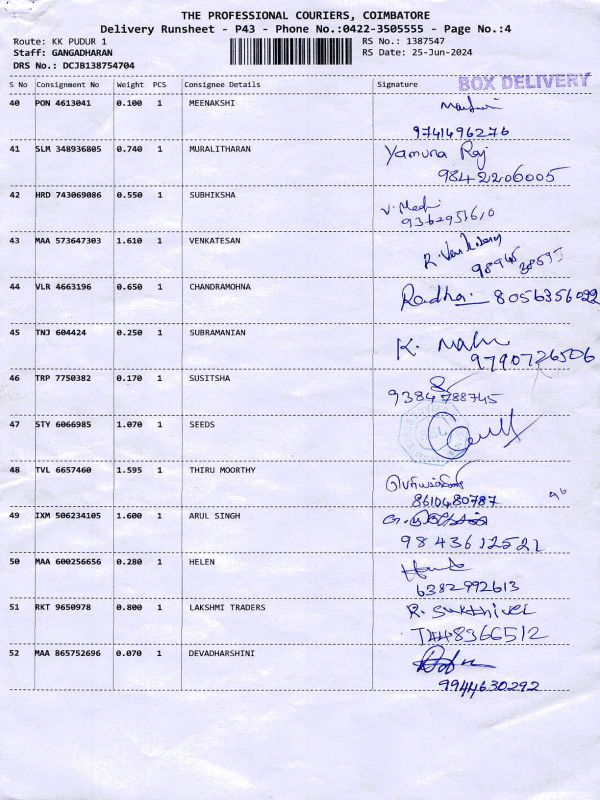 THE PROFESSIONAL COURIERS, COIMBATORE
Delivery Runsheet - P43 - Phone No.:0422-3505555 - Page No.:4
Route: KK PUDUR 1 RS No.: 1387547
Staff: GANGADHARAN RS Date: 25-Jun-2024
DRS No.: DCJB138754704
BOX DELIVERY
S No Consignment No Weight PCS Consignee Details Signature
40 PON 4613041 0.100 1 MEENAKSHI
9741496276
41 SLM 348936805 0.740 1 MURALITHARAN Yamuna Raj
9842206005
42 HRD 743069086 0.550 1 SUBHIKSHA
9362951610
43 MAA 573647303 1.610 1 VENKATESAN
44 VLR 4663196 0.650 1 CHANDRAMOHNA Radha 8056356022
45 TNJ 604424 0.250 1 SUBRAMANIAN K.
9790726506
46 TRP 7750382 0.170 1 SUSITSHA
9384788745
47 STY 6066985 1.070 1 SEEDS
48 TVL 6657460 1.595 1 THIRU MOORTHY
8610480787
49 IXM 506234105 1.600 1 ARUL SINGH
9843612521
50 MAA 600256656 0.280 1 HELEN
6382992613
51 RKT 9650978 0.800 1 LAKSHMI TRADERS R. Sakthivel
52 MAA 865752696 0.070 1 DEVADHARSHINI
9944630292